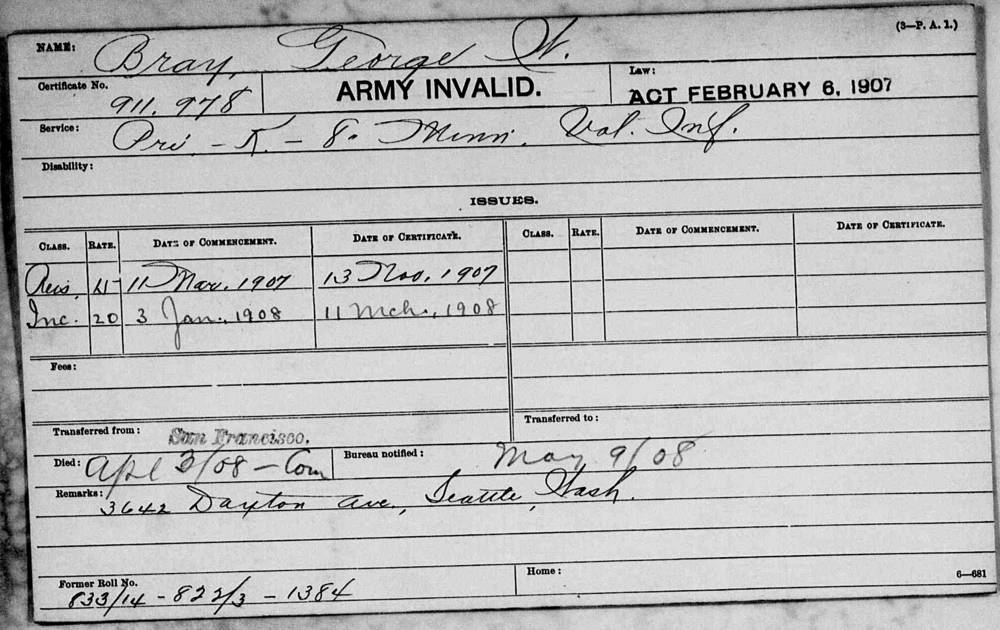 (3—P. A. 1.)
NAME: Bray, George W.
Certificate No. 911.978
ARMY INVALID.
Law: ACT FEBRUARY 6, 1907
Service: Pri. - K. - 8. Minn. Vol. Inf.
Disability:
ISSUES.
CLASS. RATE. DATE OF COMMENCEMENT. DATE OF CERTIFICATE. CLASS. RATE. DATE OF COMMENCEMENT. DATE OF CERTIFICATE.
11 Mar, 1907 13 Nov, 1907
Inc. 20 3 Jan., 1908 11 Mch., 1908
Fees:
Transferred from: San Francisco.
Transferred to:
Died: Apl 3/08 - Com
Bureau notified: May 9/08
Remarks: 3642 Dayton Ave., Seattle, Wash.
Former Roll No. 833/14 - 822/3 - 1384
Home:
6—681